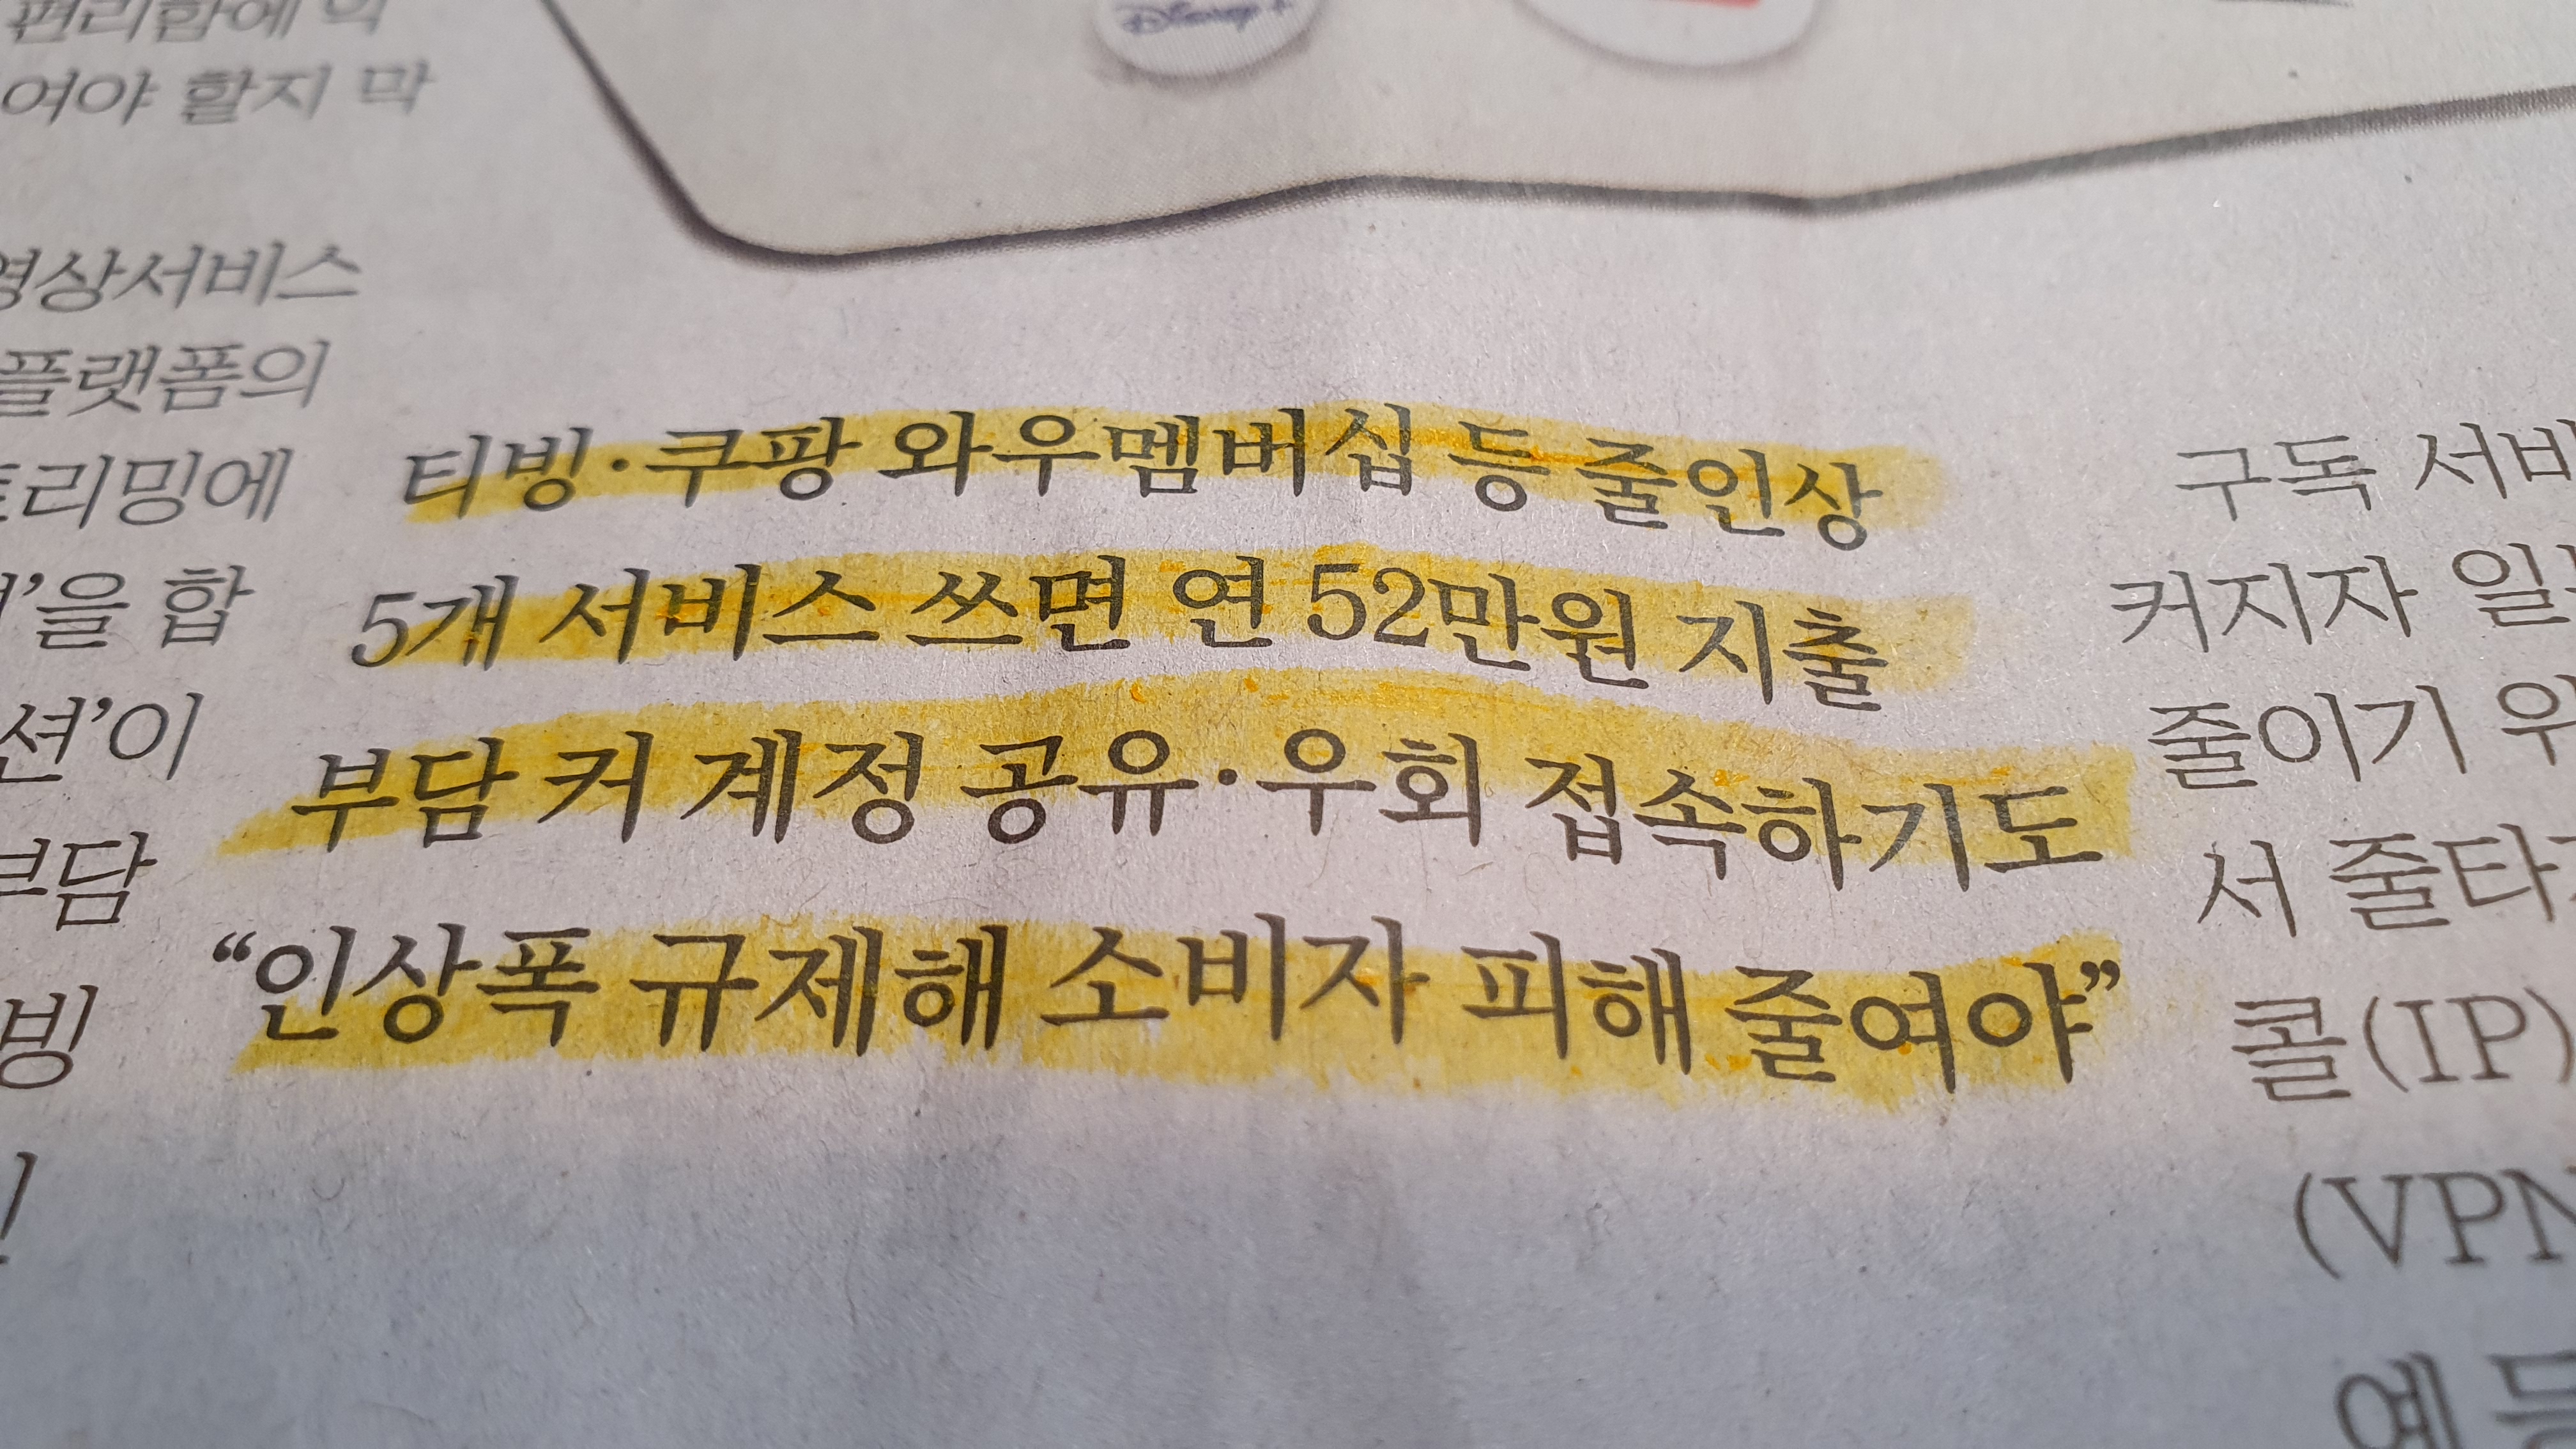 Disney+
여야 할지 막
영상서비스
플랫폼의
리밍에
’을 합
션’이
부담
빙
티빙·쿠팡 와우멤버십 등 줄인상
5개 서비스 쓰면 연 52만원 지출
부담 커 계정 공유·우회 접속하기도
“인상폭 규제해 소비자 피해 줄여야”
구독 서비
커지자 일
줄이기 우
서 줄타
콜(IP)
(VPN
예